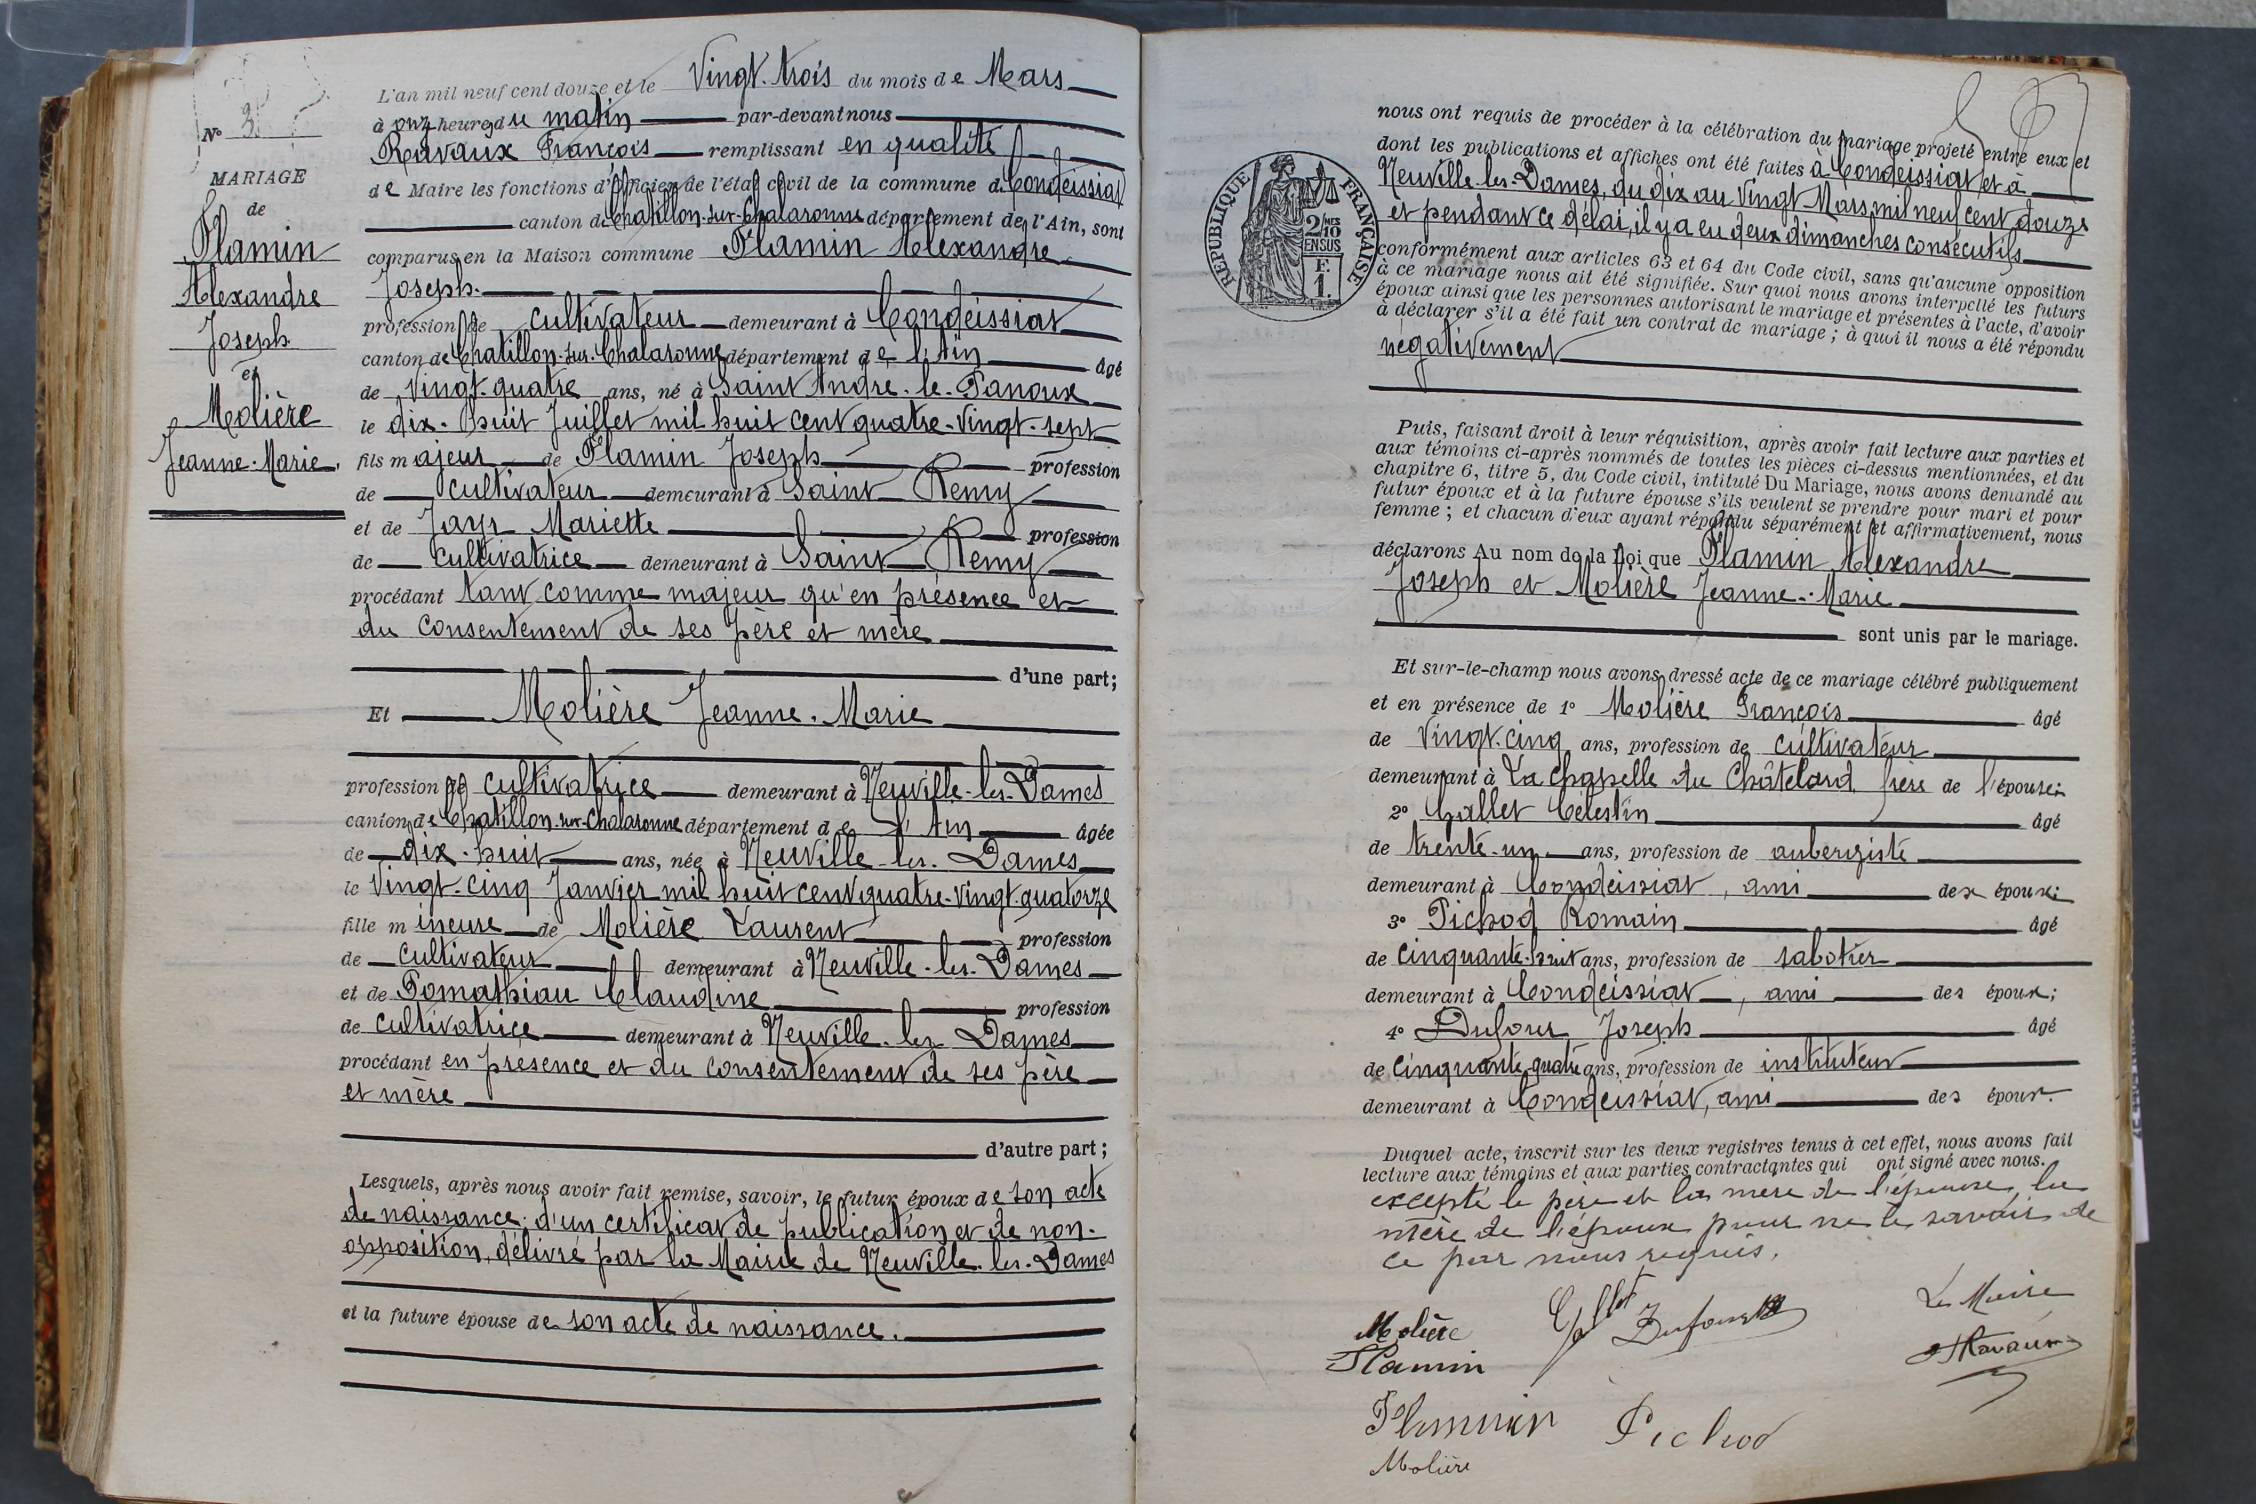 L'an mil neuf cent douze et le Vingt-trois du mois de Mars
à onz heures du matin par-devant nous
Ravaux François remplissant en qualité
de Maire les fonctions d'Officier de l'état civil de la commune de Condeissiat
canton de Chatillon-sur-Chalaronne département de l'Ain, sont
comparus en la Maison commune Flamin Alexandre
Joseph.
profession de cultivateur demeurant à Condeissiat
canton de Chatillon-sur-Chalaronne département de l'Ain âgé
de vingt-quatre ans, né à Saint André-le-Panoux
le dix-huit Juillet mil huit cent quatre-vingt-sept
fils majeur de Flamin Joseph profession
de cultivateur demeurant à Saint Remy
et de Jayr Mariette profession
de cultivatrice demeurant à Saint Remy
procédant tant comme majeur qu'en présence et
du consentement de ses père et mère
d'une part;
Et Molière Jeanne-Marie
profession de cultivatrice demeurant à Neuville-les-Dames
canton de Chatillon-sur-Chalaronne département de l'Ain âgée
de dix-huit ans, née à Neuville-les-Dames
le Vingt-cinq Janvier mil huit cent quatre-vingt-quatorze
fille mineure de Molière Laurent profession
de cultivateur demeurant à Neuville-les-Dames
et de Pomathiau Claudine profession
de cultivatrice demeurant à Neuville-les-Dames
procédant en présence et du consentement de ses père
et mère
d'autre part;
Lesquels, après nous avoir fait remise, savoir, le futur époux de son acte
de naissance; d'un certificat de publication et de non-
opposition, délivré par la Mairie de Neuville-les-Dames
et la future épouse de son acte de naissance.
N° 3
MARIAGE
de
Flamin
Alexandre
Joseph
et
Molière
Jeanne-Marie.
nous ont requis de procéder à la célébration du mariage projeté entre eux et
dont les publications et affiches ont été faites à Condeissiat et à
Neuville-les-Dames, du dix au Vingt Mars mil neuf cent douze
et pendant ce délai, il y a eu deux dimanches consécutifs
conformément aux articles 63 et 64 du Code civil, sans qu'aucune opposition
à ce mariage nous ait été signifiée. Sur quoi nous avons interpellé les futurs
époux ainsi que les personnes autorisant le mariage et présentes à l'acte, d'avoir
à déclarer s'il a été fait un contrat de mariage; à quoi il nous a été répondu
négativement
Puis, faisant droit à leur réquisition, après avoir fait lecture aux parties et
aux témoins ci-après nommés de toutes les pièces ci-dessus mentionnées, et du
chapitre 6, titre 5, du Code civil, intitulé Du Mariage, nous avons demandé au
futur époux et à la future épouse s'ils veulent se prendre pour mari et pour
femme; et chacun d'eux ayant répondu séparément et affirmativement, nous
déclarons Au nom de la Loi que Flamin Alexandre
Joseph et Molière Jeanne-Marie
sont unis par le mariage.
Et sur-le-champ nous avons dressé acte de ce mariage célébré publiquement
et en présence de 1° Molière François âgé
de Vingt-cinq ans, profession de cultivateur
demeurant à La Chapelle du Châtelard frère de l'épouse;
2° Gallet Célestin âgé
de trente-un ans, profession de aubergiste
demeurant à Condeissiat, ami des époux;
3° Pichod Romain âgé
de cinquante-huit ans, profession de sabotier
demeurant à Condeissiat, ami des époux;
4° Dufour Joseph âgé
de cinquante-quatre ans, profession de instituteur
demeurant à Condeissiat, ami des époux.
Duquel acte, inscrit sur les deux registres tenus à cet effet, nous avons fait
lecture aux témoins et aux parties contractantes qui ont signé avec nous.
excepté le père et la mère de l'épouse, la
mère de l'époux pour ne le savoir de
ce par nous requis.
Molière Gallet Dufour Le Maire
Flamin Ravaux
Flamin Pichod
Molière
RÉPUBLIQUE FRANÇAISE
2/10 MES
EN SUS
F.
1.